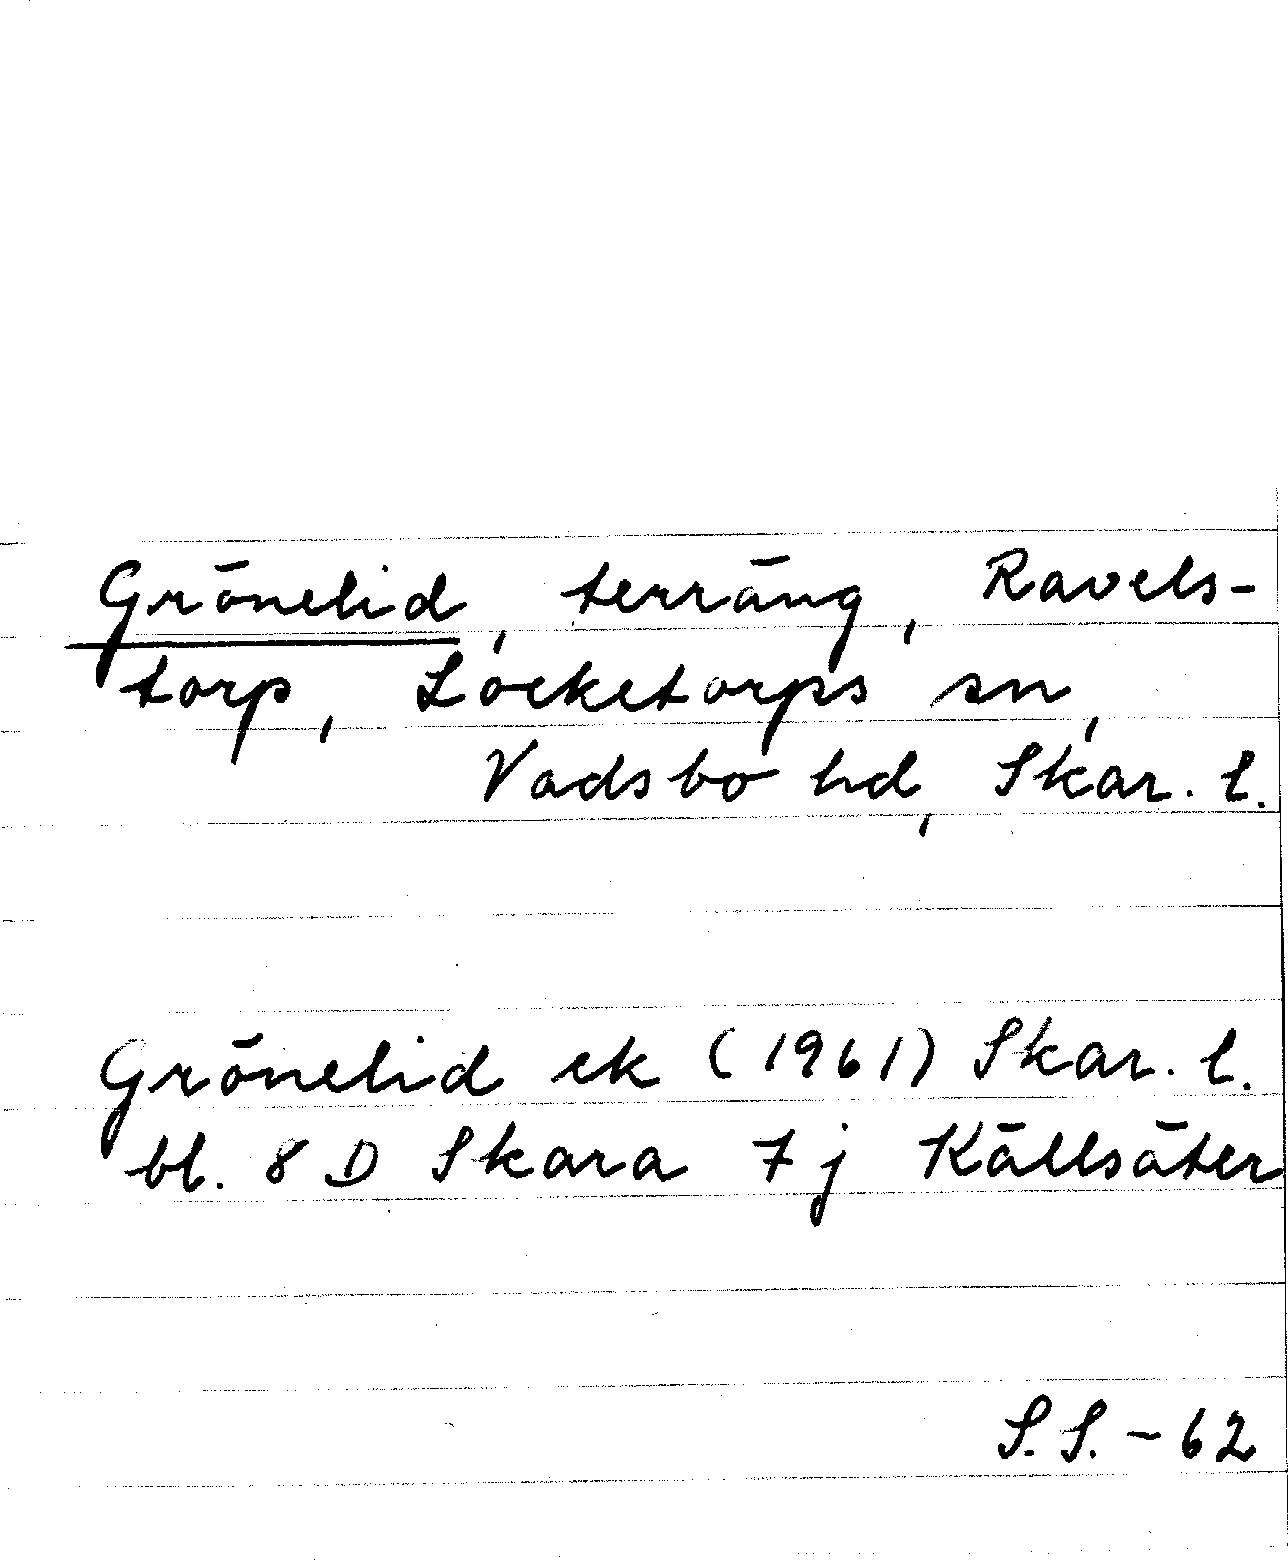 Grönelid, terräng, Ravels-
torp, Locketorps sn,
Vadsbo hd, Skar. l.
Grönelid ek (1961) Skar. l.
bl. 8 D Skara 7 j Källsäter
S.S. - 62